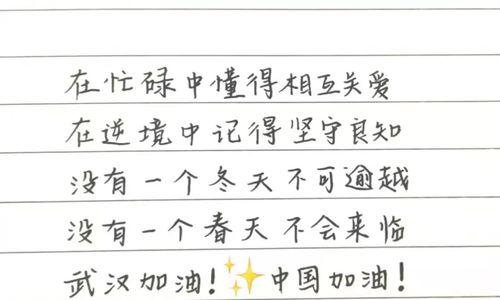 在忙碌中懂得相互关爱
在逆境中记得坚守良知
没有一个冬天不可逾越
没有一个春天不会来临
武汉加油!✨中国加油!